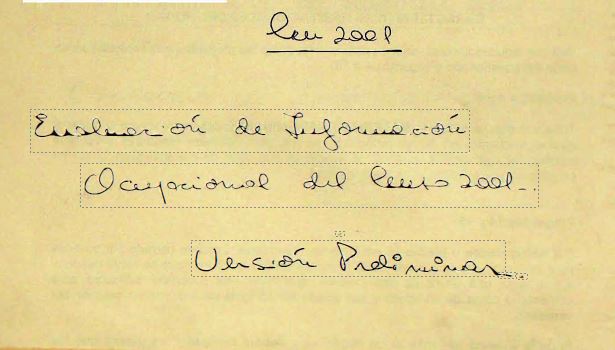 Cen 2001
Evaluación de Información
Ocupacional del Censo 2001.-
Versión Preliminar